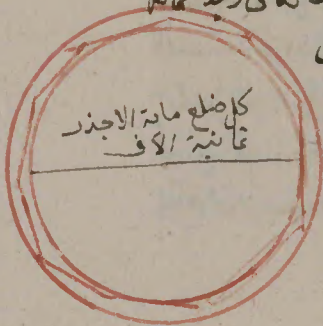 كل ضلع مائة الا جذر
ثمانية الاف